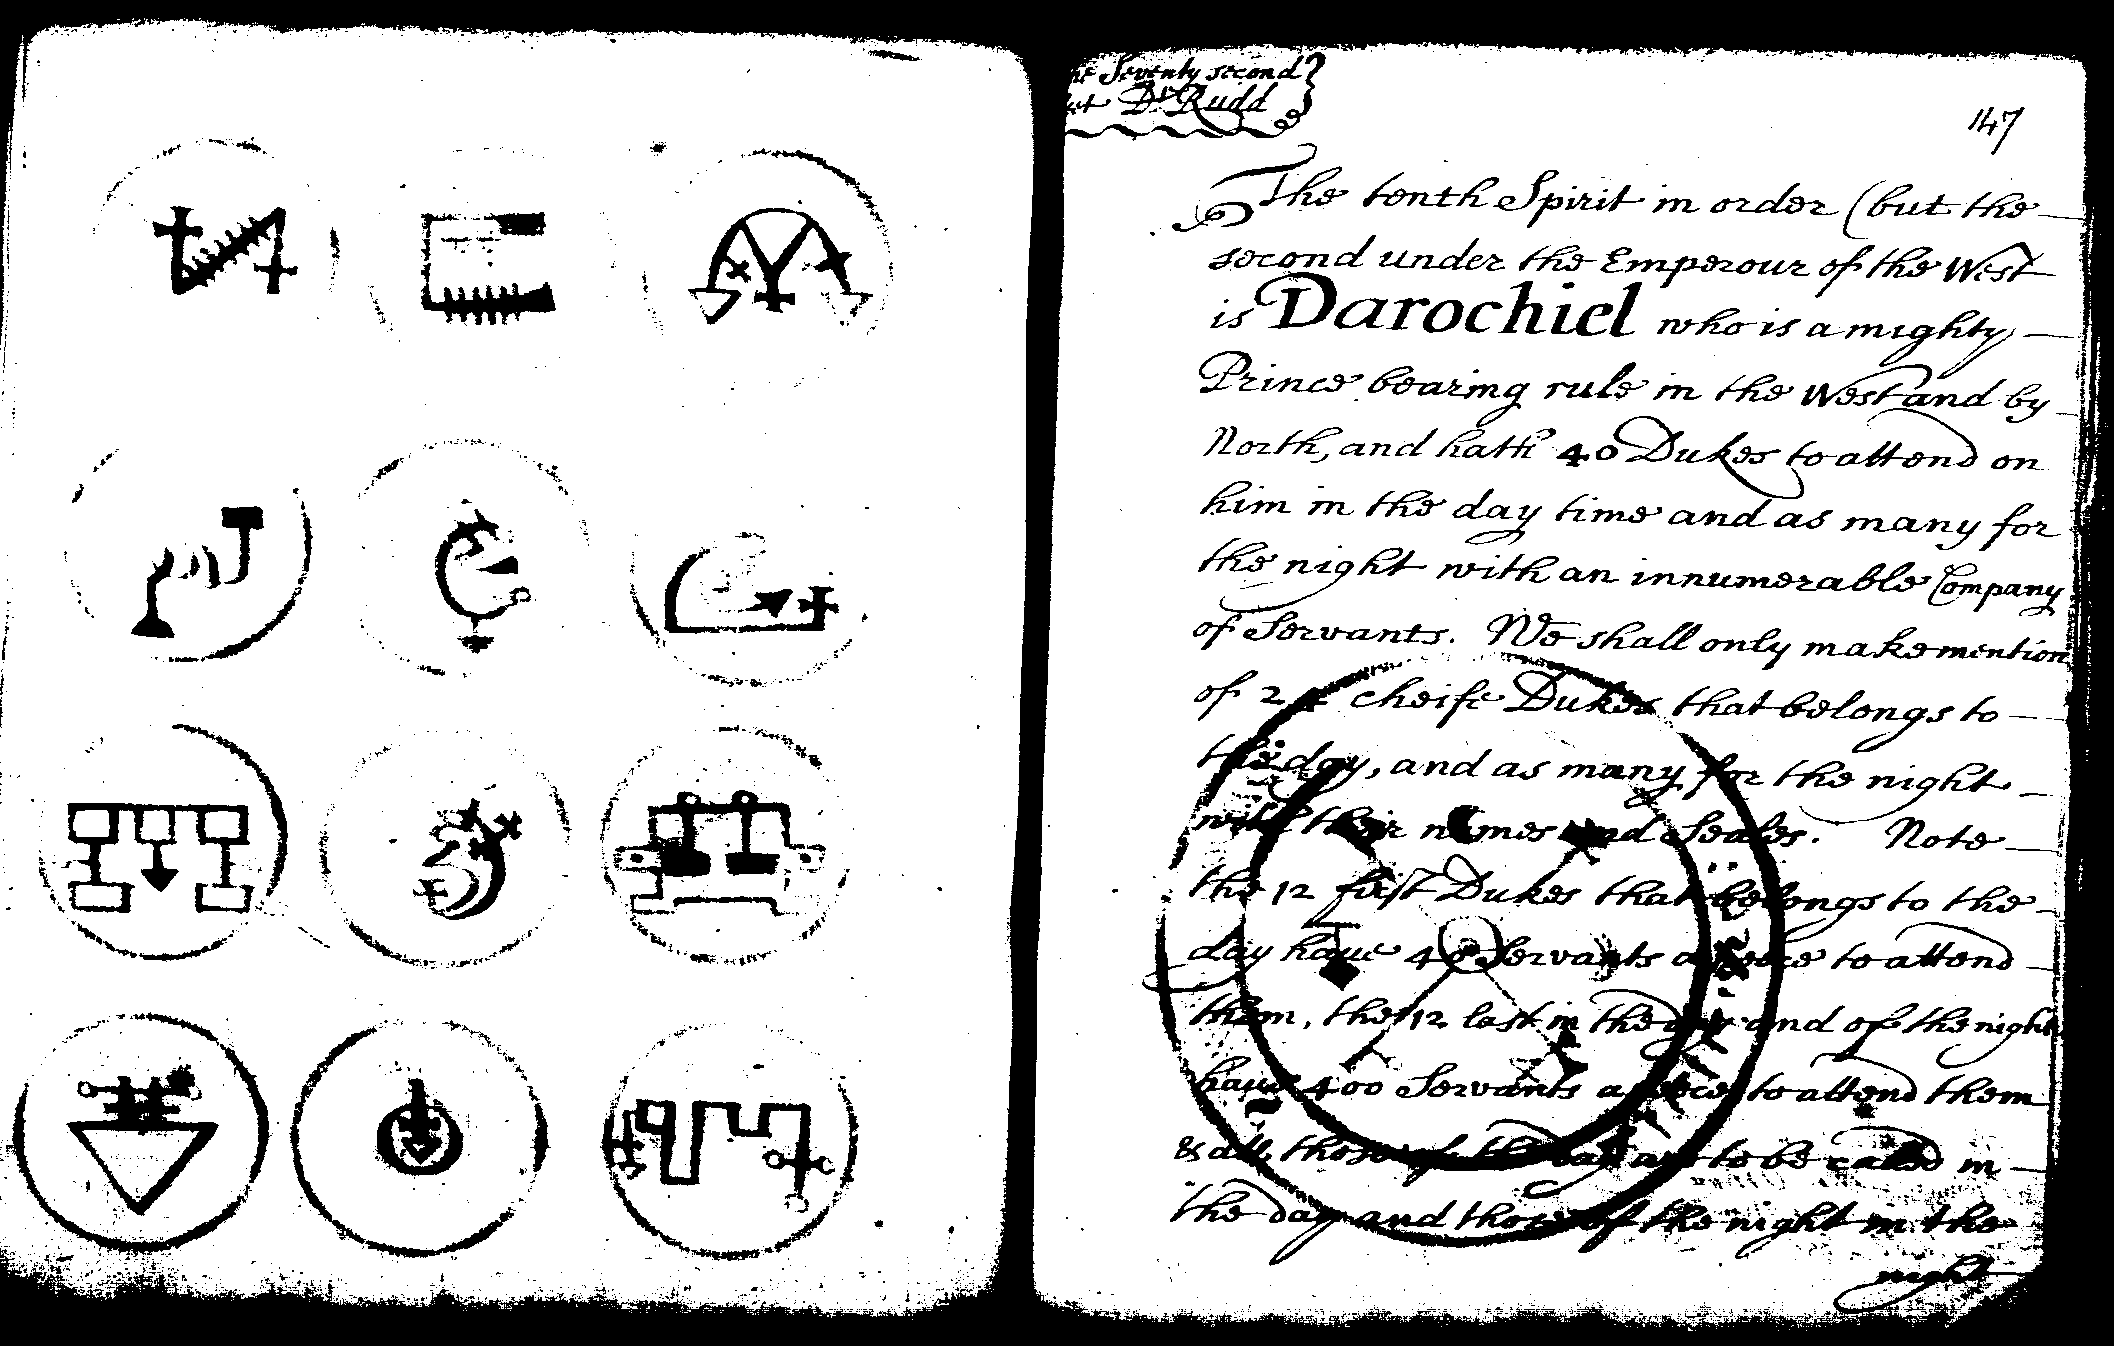 he Seventy second
et Dr Rudd
147
The tenth Spirit in order (but the
second under the Emperour of the West
is Darochiel who is a mighty
Prince bearing rule in the West and by
North, and hath 40 Dukes to attend on
him in the day time and as many for
the night with an innumerable Company
of Servants. We shall only make mention
of 24 cheife Dukes that belongs to
the day, and as many for the night
with their names and Seales. Note
the 12 first Dukes that belongs to the
day haue 40 Servants a peece to attend
them, the 12 last in the day and of the night
haue 400 Servants a peece to attend them
& all those of the day are to be called in
the day and those of the night in the
night